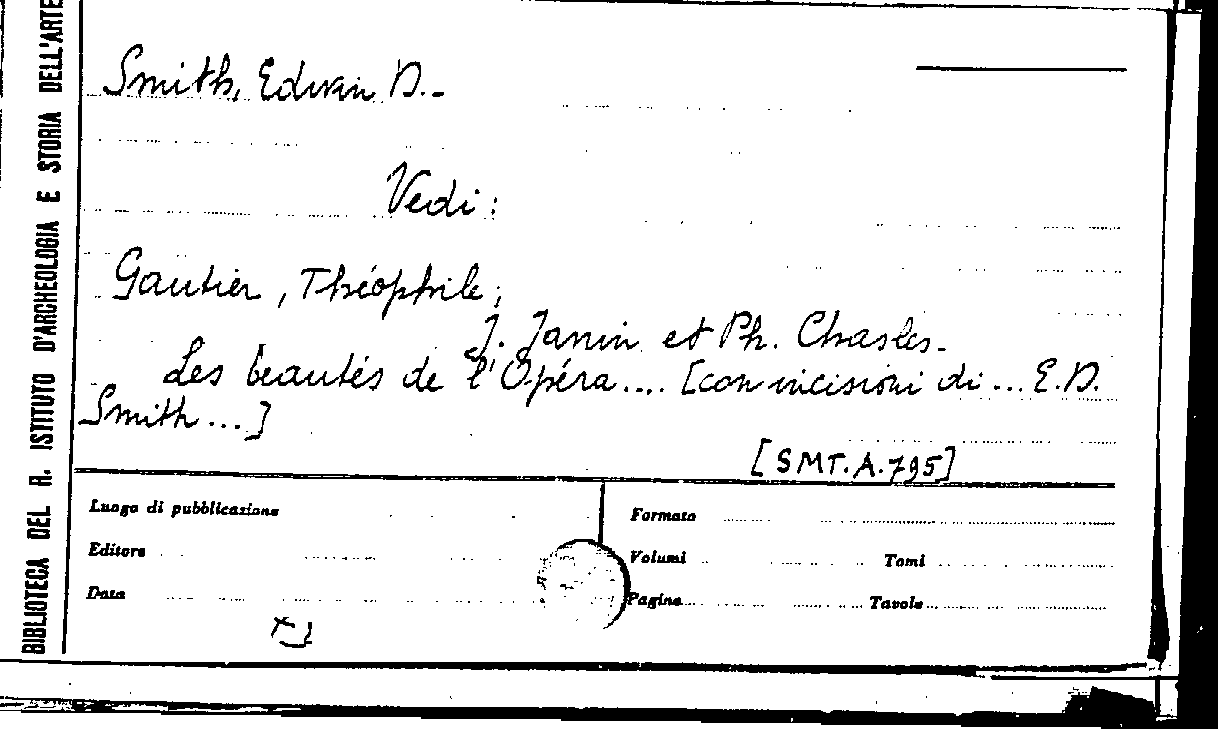 BIBLIOTECA DEL R. ISTITUTO D'ARCHEOLOGIA E STORIA DELL'ARTE
Smith, Edwin D.-
Vedi:
Gautier, Théophile;
J. Janin et Ph. Chasles.
Les beautés de l'Opéra.... [con incisioni di... E.D.
Smith...]
[SMT.A.795]
Luogo di pubblicazione
Formato
Editore
Volumi Tomi
Data
Pagine Tavole